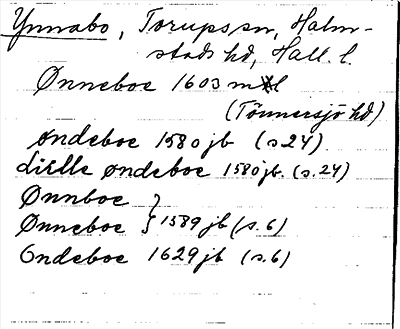 Ynnabo, Torups sn, Halm-
stads hd, Hall. l.
Ønneboe 1603 mtl
(Tönnersjö hd)
øndeboe 1580 jb (s.24)
Lidlle øndeboe 1580 jb. (s.24)
Ønnboe }
Ønneboe } 1589 jb (s.6)
Ondeboe 1629 jb (s.6)